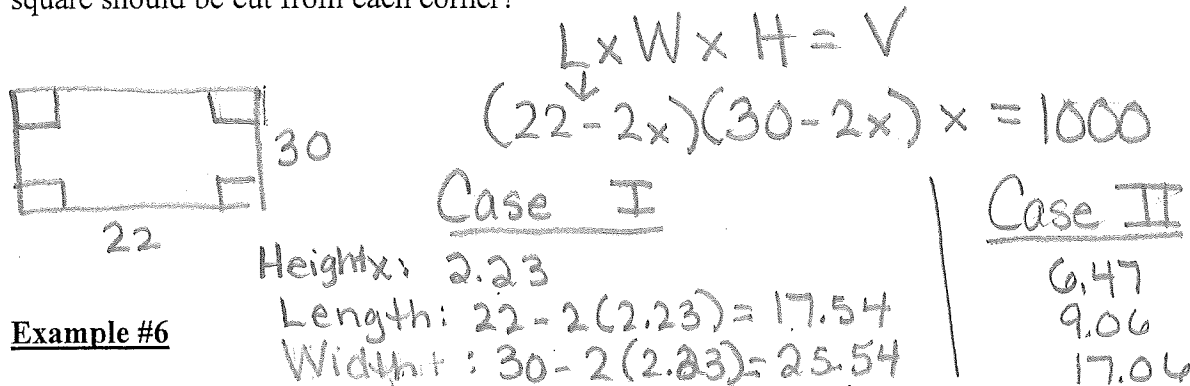 square should be cut from each corner?
L x W x H = V
(22 - 2x)(30 - 2x) x = 1000
30
22
Case I
Height x: 2.23
Length: 22 - 2(2.23) = 17.54
Width: 30 - 2(2.23) = 25.54
Case II
6.47
9.06
17.06
Example #6